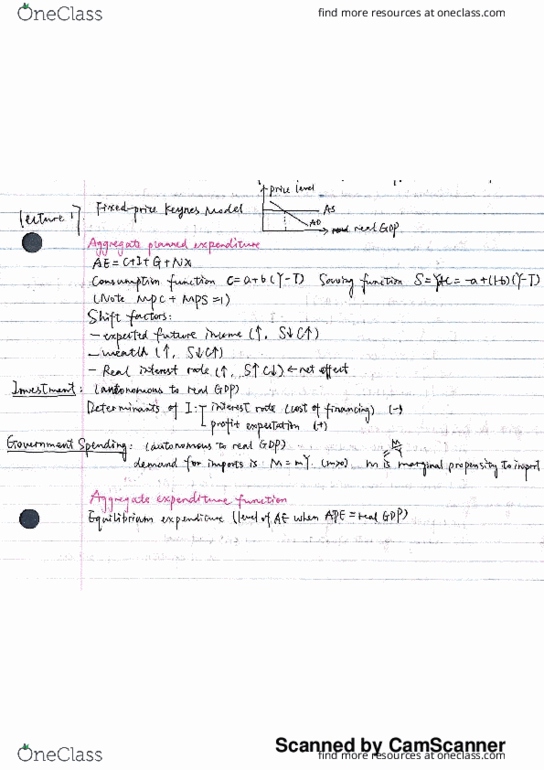 OneClass
find more resources at oneclass.com
price level
AS
AD
real GDP
Lecture 1 Fixed-price Keynes Model
Aggregate planned expenditure
AE = C+I+G+NX
Consumption function C=a+b(Y-T) Saving function S=Y-C=-a+(1-b)(Y-T)
(Note MPC + MPS =1)
Shift factors:
- expected future income (↑, S↓C↑)
- wealth (↑, S↓C↑)
- Real interest rate (↑, S↑C↓) ← net effect
Investment: (autonomous to real GDP)
Determinants of I: interest rate (cost of financing) (-)
profit expectation (+)
Government Spending: (autonomous to real GDP)
demand for imports is M = mY. (m>0) m is marginal propensity to import
Aggregate expenditure function
Equilibrium expenditure (level of AE when APE = real GDP)
Scanned by CamScanner
OneClass
find more resources at oneclass.com